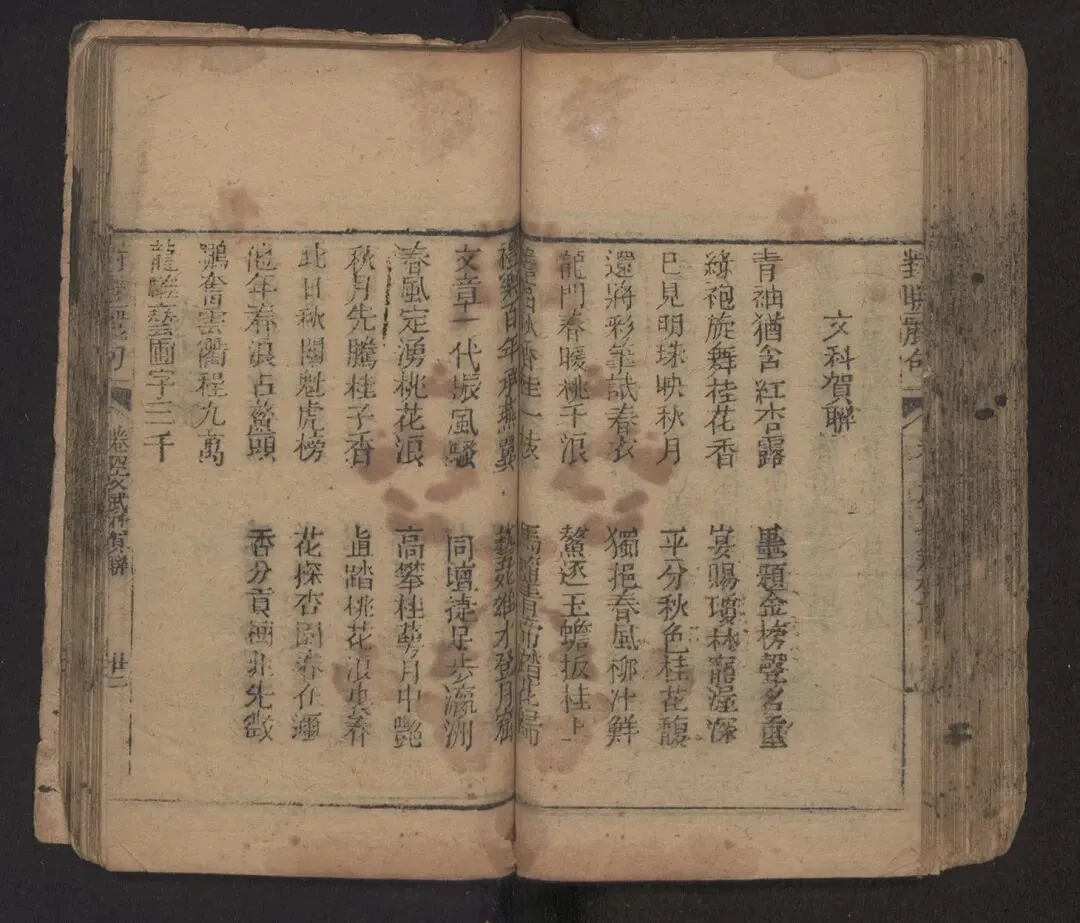 文科賀聯
青袖猶含紅杏露 墨題金榜聲名重
綠袍旋舞桂花香 宴賜瓊林寵渥深
已見明珠映秋月 平分秋色桂花馥
還將彩筆試春衣 獨挹春風柳汁鮮
龍門春暖桃千浪 鰲逐玉蟾扳桂上
蟾宮秋香桂一枝
禮樂百年承燕翼 才登月窟
文章一代振風騷 同壇捷足步瀛洲
春風定湧桃花浪 高攀桂蕚月中艷
秋月先騰桂子香 直踏桃花浪裏春
此日秋闈魁虎榜 花探杏園春在邇
他年春浪占鰲頭 香分貢樹兆先徵
鵬奮雲衢程九萬
龍雕藝圃字三千
卷四文武科賀聯
廿二